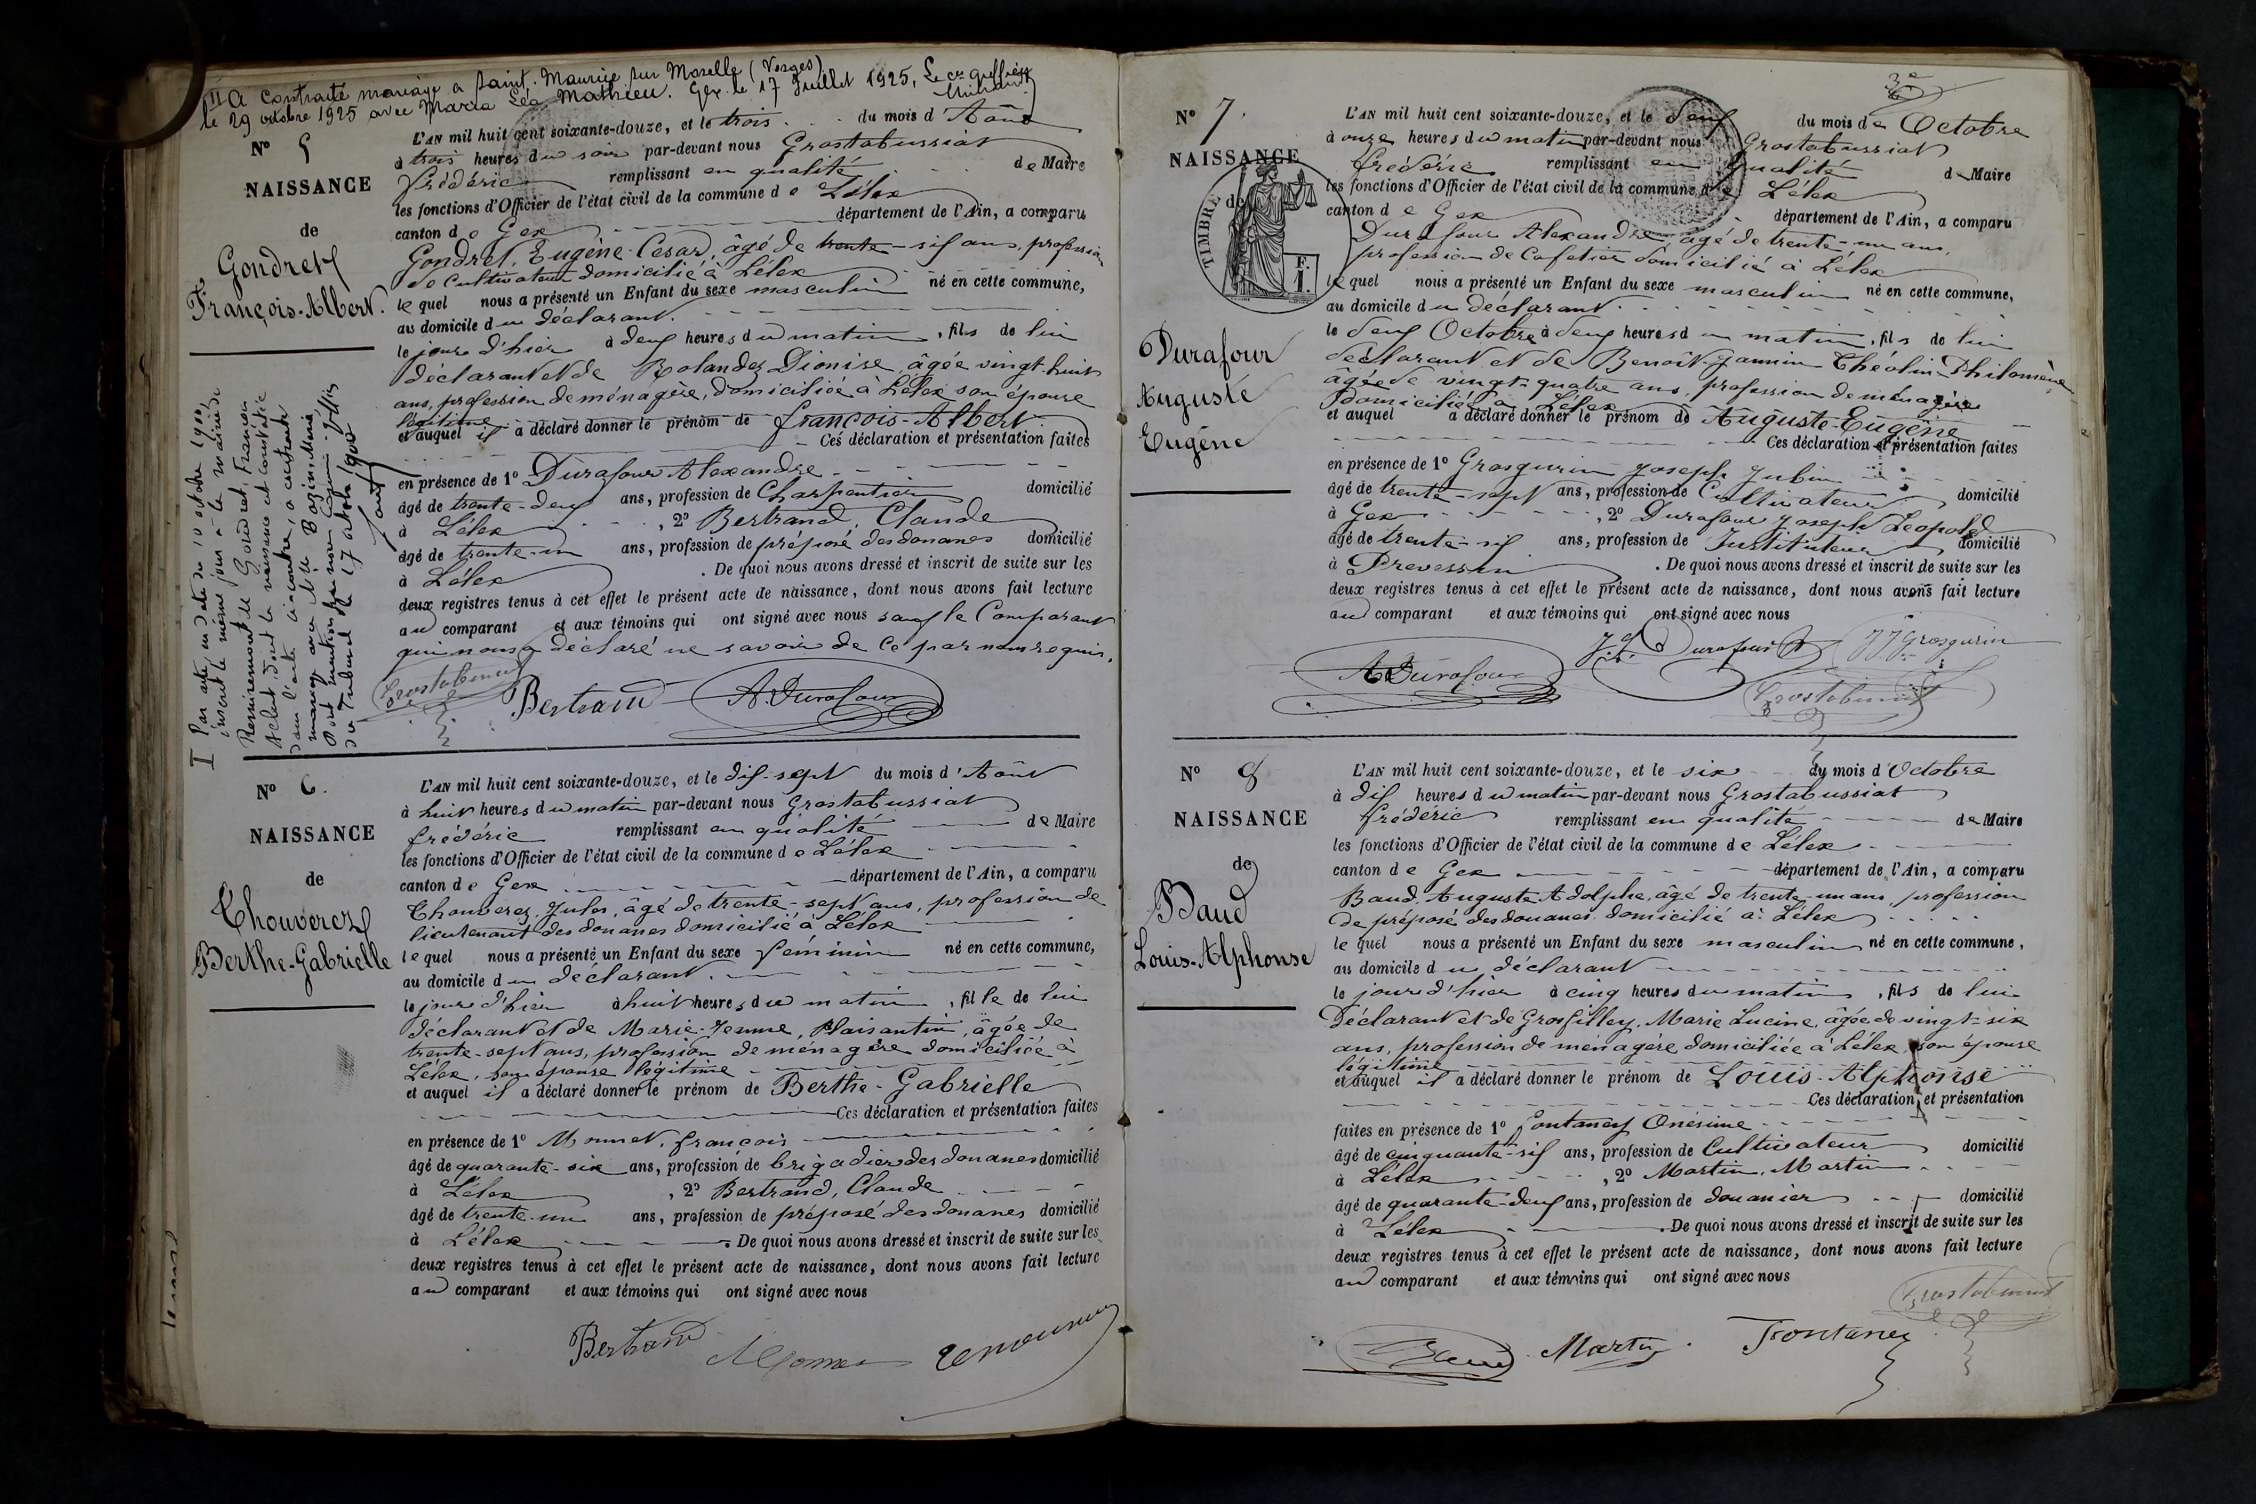 II A contracté mariage à Saint-Maurice sur Moselle (Vosges)
le 29 octobre 1925 avec Maria Léa Mathieu. Gex le 17 Juillet 1925, Le
N° 5
NAISSANCE
de
Gondret
François-Albert.
L'AN mil huit cent soixante-douze, et le trois du mois d'Août
à trois heures du soir par-devant nous Grostabussiat
frédéric remplissant en qualité de Maire
les fonctions d'Officier de l'état civil de la commune de Lélex
canton de Gex département de l'Ain, a comparu
Gondret, Eugène-César, âgé de trente-six ans, profession
de Cultivateur domicilié à Lélex
lequel nous a présenté un Enfant du sexe masculin né en cette commune,
au domicile du déclarant.
le jour d'hier à deux heures du matin, fils de lui
déclarant et de Rolandez Dionise, âgée vingt-huit
ans, profession de ménagère, domiciliée à Lélex son épouse
légitime
et auquel il a déclaré donner le prénom de françois-Albert
Ces déclaration et présentation faites
en présence de 1° Durafour Alexandre
âgé de trente-deux ans, profession de Charpentier domicilié
à Lélex, 2° Bertrand, Claude
âgé de trente-un ans, profession de préposé des douanes domicilié
à Lélex. De quoi nous avons dressé et inscrit de suite sur les
deux registres tenus à cet effet le présent acte de naissance, dont nous avons fait lecture
au comparant et aux témoins qui ont signé avec nous sauf le Comparant
qui nous a déclaré ne savoir de ce par nous requis.
Grostabussiat Bertrand A. Durafour
I Par acte en date du 10 octobre 1900,
inscrit le même jour à la mairie de
Remiremont le Gondret, François
Albert dont la naissance est constatée
dans l'acte ci-contre, a contracté
mariage avec Marie
Dont mention par nous greffier
du Tribunal le 17 octobre 1900
N° 6.
NAISSANCE
de
Thouverez
Berthe-Gabrielle
L'AN mil huit cent soixante-douze, et le dix-sept du mois d'Août
à huit heures du matin par-devant nous Grostabussiat
frédéric remplissant en qualité de Maire
les fonctions d'Officier de l'état civil de la commune de Lélex
canton de Gex département de l'Ain, a comparu
Thouverez, Jules, âgé de trente-sept ans, profession de
lieutenant des douanes domicilié à Lélex
lequel nous a présenté un Enfant du sexe féminin né en cette commune,
au domicile du déclarant.
le jour d'hier à huit heures du matin, fille de lui
déclarant et de Marie-Jeanne, Plaisantin, âgée de
trente-sept ans, profession de ménagère domiciliée à
Lélex, son épouse légitime
et auquel il a déclaré donner le prénom de Berthe-Gabrielle
Ces déclaration et présentation faites
en présence de 1° Monnet, françois
âgé de quarante-six ans, profession de brigadier des douanes domicilié
à Lélex, 2° Bertrand, Claude
âgé de trente-un ans, profession de préposé des douanes domicilié
à Lélex. De quoi nous avons dressé et inscrit de suite sur les
deux registres tenus à cet effet le présent acte de naissance, dont nous avons fait lecture
au comparant et aux témoins qui ont signé avec nous
Bertrand Monnet
3e
N° 7.
NAISSANCE
de
TIMBRE
F.
1.
Durafour
Auguste
Eugène
L'AN mil huit cent soixante-douze, et le deux du mois de Octobre
à onze heures du matin par-devant nous Grostabussiat
frédéric remplissant en qualité de Maire
les fonctions d'Officier de l'état civil de la commune de Lélex
canton de Gex département de l'Ain, a comparu
Durafour Alexandre, âgé de trente-un ans,
profession de Cafetier domicilié à Lélex
lequel nous a présenté un Enfant du sexe masculin né en cette commune,
au domicile du déclarant
le deux Octobre à deux heures du matin, fils de lui
déclarant et de Benoît-Jannin Théolin-Philomène
âgée de vingt-quatre ans, profession de ménagère
domiciliée à Lélex
et auquel a déclaré donner le prénom de Auguste-Eugène
Ces déclaration et présentation faites
en présence de 1° Grosgurin Joseph Jubin
âgé de trente-sept ans, profession de Cultivateur domicilié
à Gex, 2° Durafour Joseph Léopold
âgé de trente-six ans, profession de Instituteur domicilié
à Prevessin. De quoi nous avons dressé et inscrit de suite sur les
deux registres tenus à cet effet le présent acte de naissance, dont nous avons fait lecture
au comparant et aux témoins qui ont signé avec nous
A Durafour J. L. Durafour JJ Grosgurin
Grostabussiat
N° 8
NAISSANCE
de
Baud
Louis-Alphonse
L'AN mil huit cent soixante-douze, et le six du mois d'Octobre
à dix heures du matin par-devant nous Grostabussiat
frédéric remplissant en qualité de Maire
les fonctions d'Officier de l'état civil de la commune de Lélex
canton de Gex département de l'Ain, a comparu
Baud, Auguste Adolphe, âgé de trente-un ans, profession
de préposé des douanes, domicilié à Lélex
lequel nous a présenté un Enfant du sexe masculin né en cette commune,
au domicile du déclarant
le jour d'hier à cinq heures du matin, fils de lui
Déclarant et de Grosfilley, Marie Lucine, âgée de vingt-six
ans, profession de ménagère domiciliée à Lélex, son épouse
légitime
et auquel il a déclaré donner le prénom de Louis-Alphonse
Ces déclaration et présentation
faites en présence de 1° Fontaney Onésime
âgé de cinquante-six ans, profession de Cultivateur domicilié
à Lélex, 2° Martin, Martin
âgé de quarante-deux ans, profession de douanier domicilié
à Lélex. De quoi nous avons dressé et inscrit de suite sur les
deux registres tenus à cet effet le présent acte de naissance, dont nous avons fait lecture
au comparant et aux témoins qui ont signé avec nous
Grostabussiat
Baud Martin Fontaney